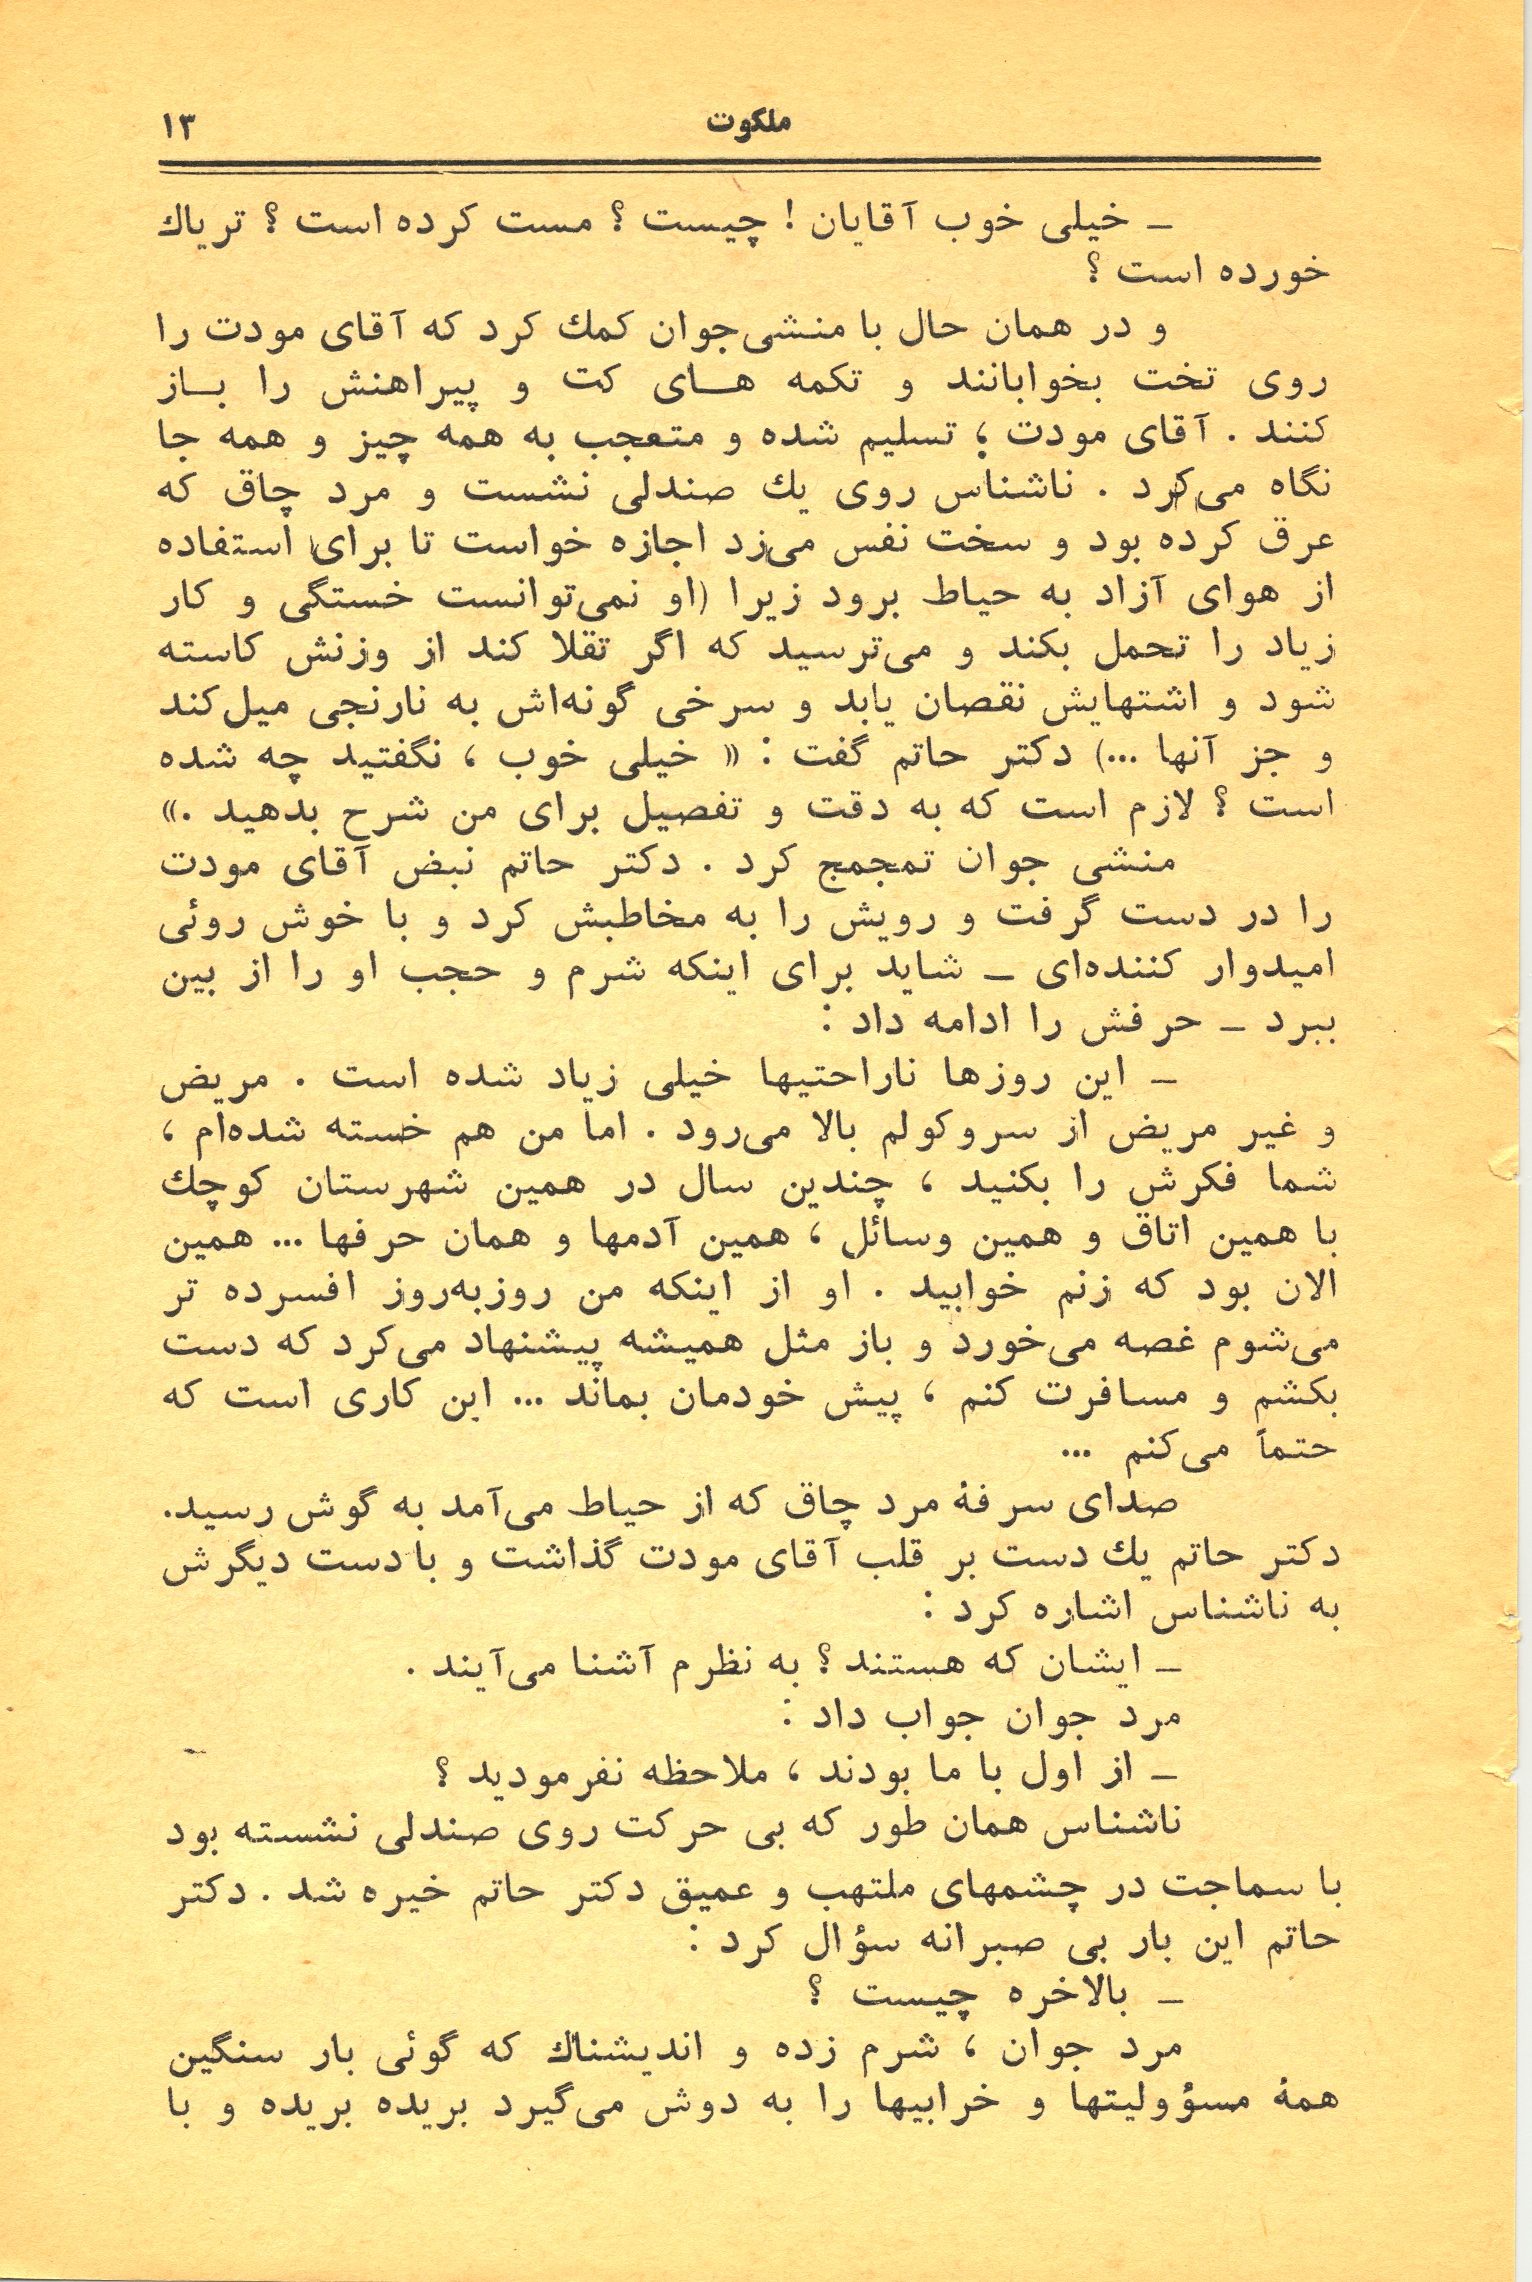 ملکوت
۱۳
ـ خیلی خوب آقایان ! چیست ؟ مست کرده است ؟ تریاك
خورده است ؟
و در همان حال با منشی‌جوان کمك کرد که آقای مودت را
روی تخت بخوابانند و تکمه هـای کت و پیراهنش را بـاز
کنند . آقای مودت ؛ تسلیم شده و متعجب به همه چیز و همه جا
نگاه می‌کرد . ناشناس روی یك صندلی نشست و مرد چاق که
عرق کرده بود و سخت نفس می‌زد اجازه خواست تا برای استفاده
از هوای آزاد به حیاط برود زیرا (او نمی‌توانست خستگی و کار
زیاد را تحمل بکند و می‌ترسید که اگر تقلا کند از وزنش کاسته
شود و اشتهایش نقصان یابد و سرخی گونه‌اش به نارنجی میل‌کند
و جز آنها ...) دکتر حاتم گفت : « خیلی خوب ، نگفتید چه شده
است ؟ لازم است که به دقت و تفصیل برای من شرح بدهید .»
منشی جوان تمجمج کرد . دکتر حاتم نبض آقای مودت
را در دست گرفت و رویش را به مخاطبش کرد و با خوش روئی
امیدوار کننده‌ای ـ شاید برای اینکه شرم و حجب او را از بین
ببرد ـ حرفش را ادامه داد :
ـ این روزها ناراحتیها خیلی زیاد شده است . مریض
و غیر مریض از سروکولم بالا می‌رود . اما من هم خسته شده‌ام ،
شما فکرش را بکنید ، چندین سال در همین شهرستان کوچك
با همین اتاق و همین وسائل ، همین آدمها و همان حرفها ... همین
الان بود که زنم خوابید . او از اینکه من روزبه‌روز افسرده تر
می‌شوم غصه می‌خورد و باز مثل همیشه پیشنهاد می‌کرد که دست
بکشم و مسافرت کنم ، پیش خودمان بماند ... این کاری است که
حتماً می‌کنم ...
صدای سرفهٔ مرد چاق که از حیاط می‌آمد به گوش رسید.
دکتر حاتم یك دست بر قلب آقای مودت گذاشت و با دست دیگرش
به ناشناس اشاره کرد :
ـ ایشان که هستند ؟ به نظرم آشنا می‌آیند .
مرد جوان جواب داد :
ـ از اول با ما بودند ، ملاحظه نفرمودید ؟
ناشناس همان طور که بی حرکت روی صندلی نشسته بود
با سماجت در چشمهای ملتهب و عمیق دکتر حاتم خیره شد . دکتر
حاتم این بار بی صبرانه سؤال کرد :
ـ بالاخره چیست ؟
مرد جوان ، شرم زده و اندیشناك که گوئی بار سنگین
همهٔ مسؤولیتها و خرابیها را به دوش می‌گیرد بریده بریده و با